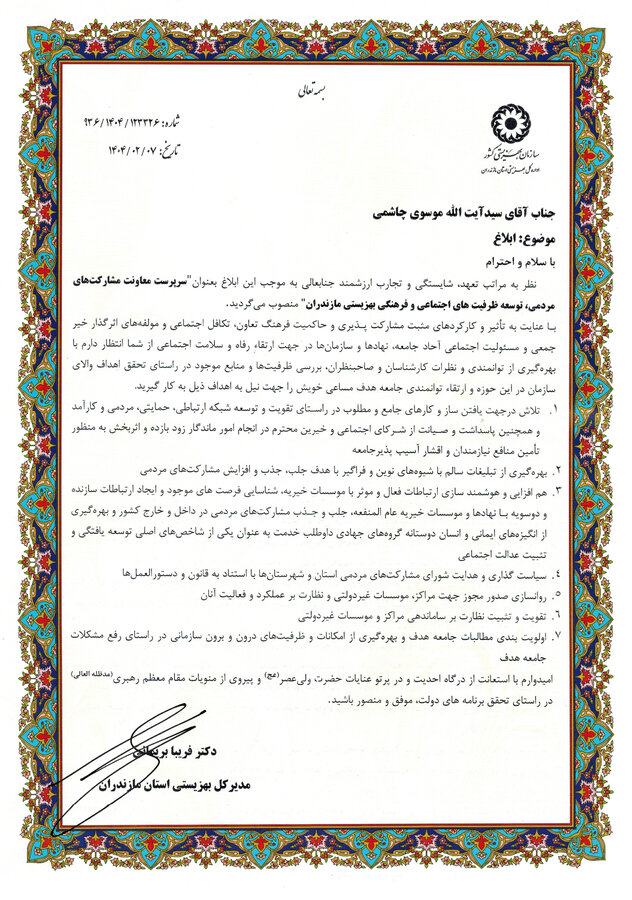 بسمه تعالی
شماره: ۹۳۶/۱۴۰۴/۱۲۳۳۲۶
تاریخ: ۱۴۰۴/۰۲/۰۷
سازمان بهزیستی کشور
اداره کل بهزیستی استان مازندران
جناب آقای سیدآیت الله موسوی چاشمی
موضوع: ابلاغ
با سلام و احترام
نظر به مراتب تعهد، شایستگی و تجارب ارزشمند جنابعالی به موجب این ابلاغ بعنوان"سرپرست معاونت مشارکت‌های
مردمی، توسعه ظرفیت های اجتماعی و فرهنگی بهزیستی مازندران" منصوب می‌گردید.
با عنایت به تأثیر و کارکردهای مثبت مشارکت پذیری و حاکمیت فرهنگ تعاون، تکافل اجتماعی و مولفه‌های اثرگذار خیر
جمعی و مسئولیت اجتماعی آحاد جامعه، نهادها و سازمان‌ها در جهت ارتقاء رفاه و سلامت اجتماعی از شما انتظار دارم با
بهره‌گیری از توانمندی و نظرات کارشناسان و صاحبنظران، بررسی ظرفیت‌ها و منابع موجود در راستای تحقق اهداف والای
سازمان در این حوزه و ارتقاء توانمندی جامعه هدف مساعی خویش را جهت نیل به اهداف ذیل به کار گیرید.
۱. تلاش درجهت یافتن ساز و کارهای جامع و مطلوب در راستای تقویت و توسعه شبکه ارتباطی، حمایتی، مردمی و کارآمد
و همچنین پاسداشت و صیانت از شرکای اجتماعی و خیرین محترم در انجام امور ماندگار زود بازده و اثربخش به منظور
تأمین منافع نیازمندان و اقشار آسیب پذیرجامعه
۲. بهره‌گیری از تبلیغات سالم با شیوه‌های نوین و فراگیر با هدف جلب، جذب و افزایش مشارکت‌های مردمی
۳. هم افزایی و هوشمند سازی ارتباطات فعال و موثر با موسسات خیریه، شناسایی فرصت های موجود و ایجاد ارتباطات سازنده
و دوسویه با نهادها و موسسات خیریه عام المنفعه، جلب و جذب مشارکت‌های مردمی در داخل و خارج کشور و بهره‌گیری
از انگیزه‌های ایمانی و انسان دوستانه گروه‌های جهادی داوطلب خدمت به عنوان یکی از شاخص‌های اصلی توسعه یافتگی و
تثبیت عدالت اجتماعی
۴. سیاست گذاری و هدایت شورای مشارکت‌های مردمی استان و شهرستان‌ها با استناد به قانون و دستورالعمل‌ها
۵. روانسازی صدور مجوز جهت مراکز، موسسات غیردولتی و نظارت بر عملکرد و فعالیت آنان
۶. تقویت و تثبیت نظارت بر ساماندهی مراکز و موسسات غیردولتی
۷. اولویت بندی مطالبات جامعه هدف و بهره‌گیری از امکانات و ظرفیت‌های درون و برون سازمانی در راستای رفع مشکلات
جامعه هدف
امیدوارم با استعانت از درگاه احدیت و در پرتو عنایات حضرت ولی‌عصر(عج) و پیروی از منویات مقام معظم رهبری(مدظله العالی)
در راستای تحقق برنامه های دولت، موفق و منصور باشید.
دکتر فریبا بریمانی
مدیرکل بهزیستی استان مازندران